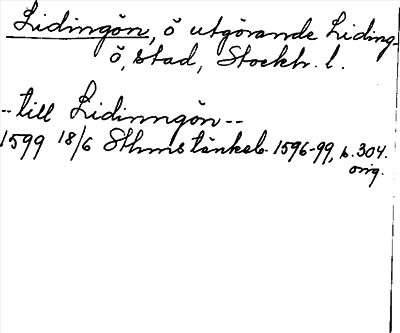 Lidingön, ö utgörande Liding-
ö, stad, Stockh. l.
-- till Lidinngön --
1599 18/6 Sthms tänkeb. 1596-99, s. 304.
orig.